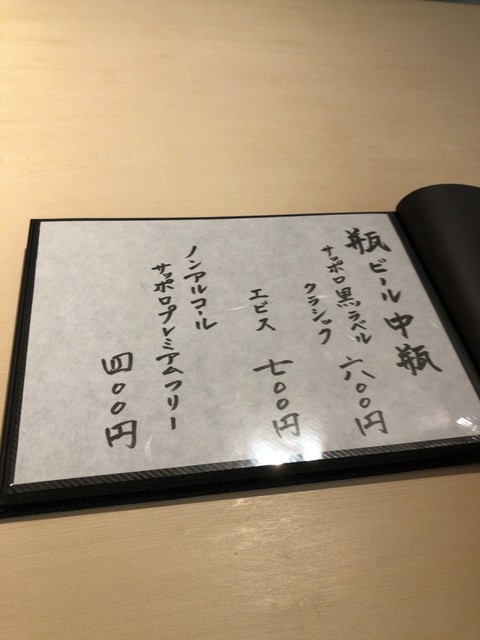 瓶ビール中瓶
サッポロ黒ラベル 六〇〇円
クラシック
エビス 七〇〇円
ノンアルコール
サッポロプレミアムフリー
四〇〇円